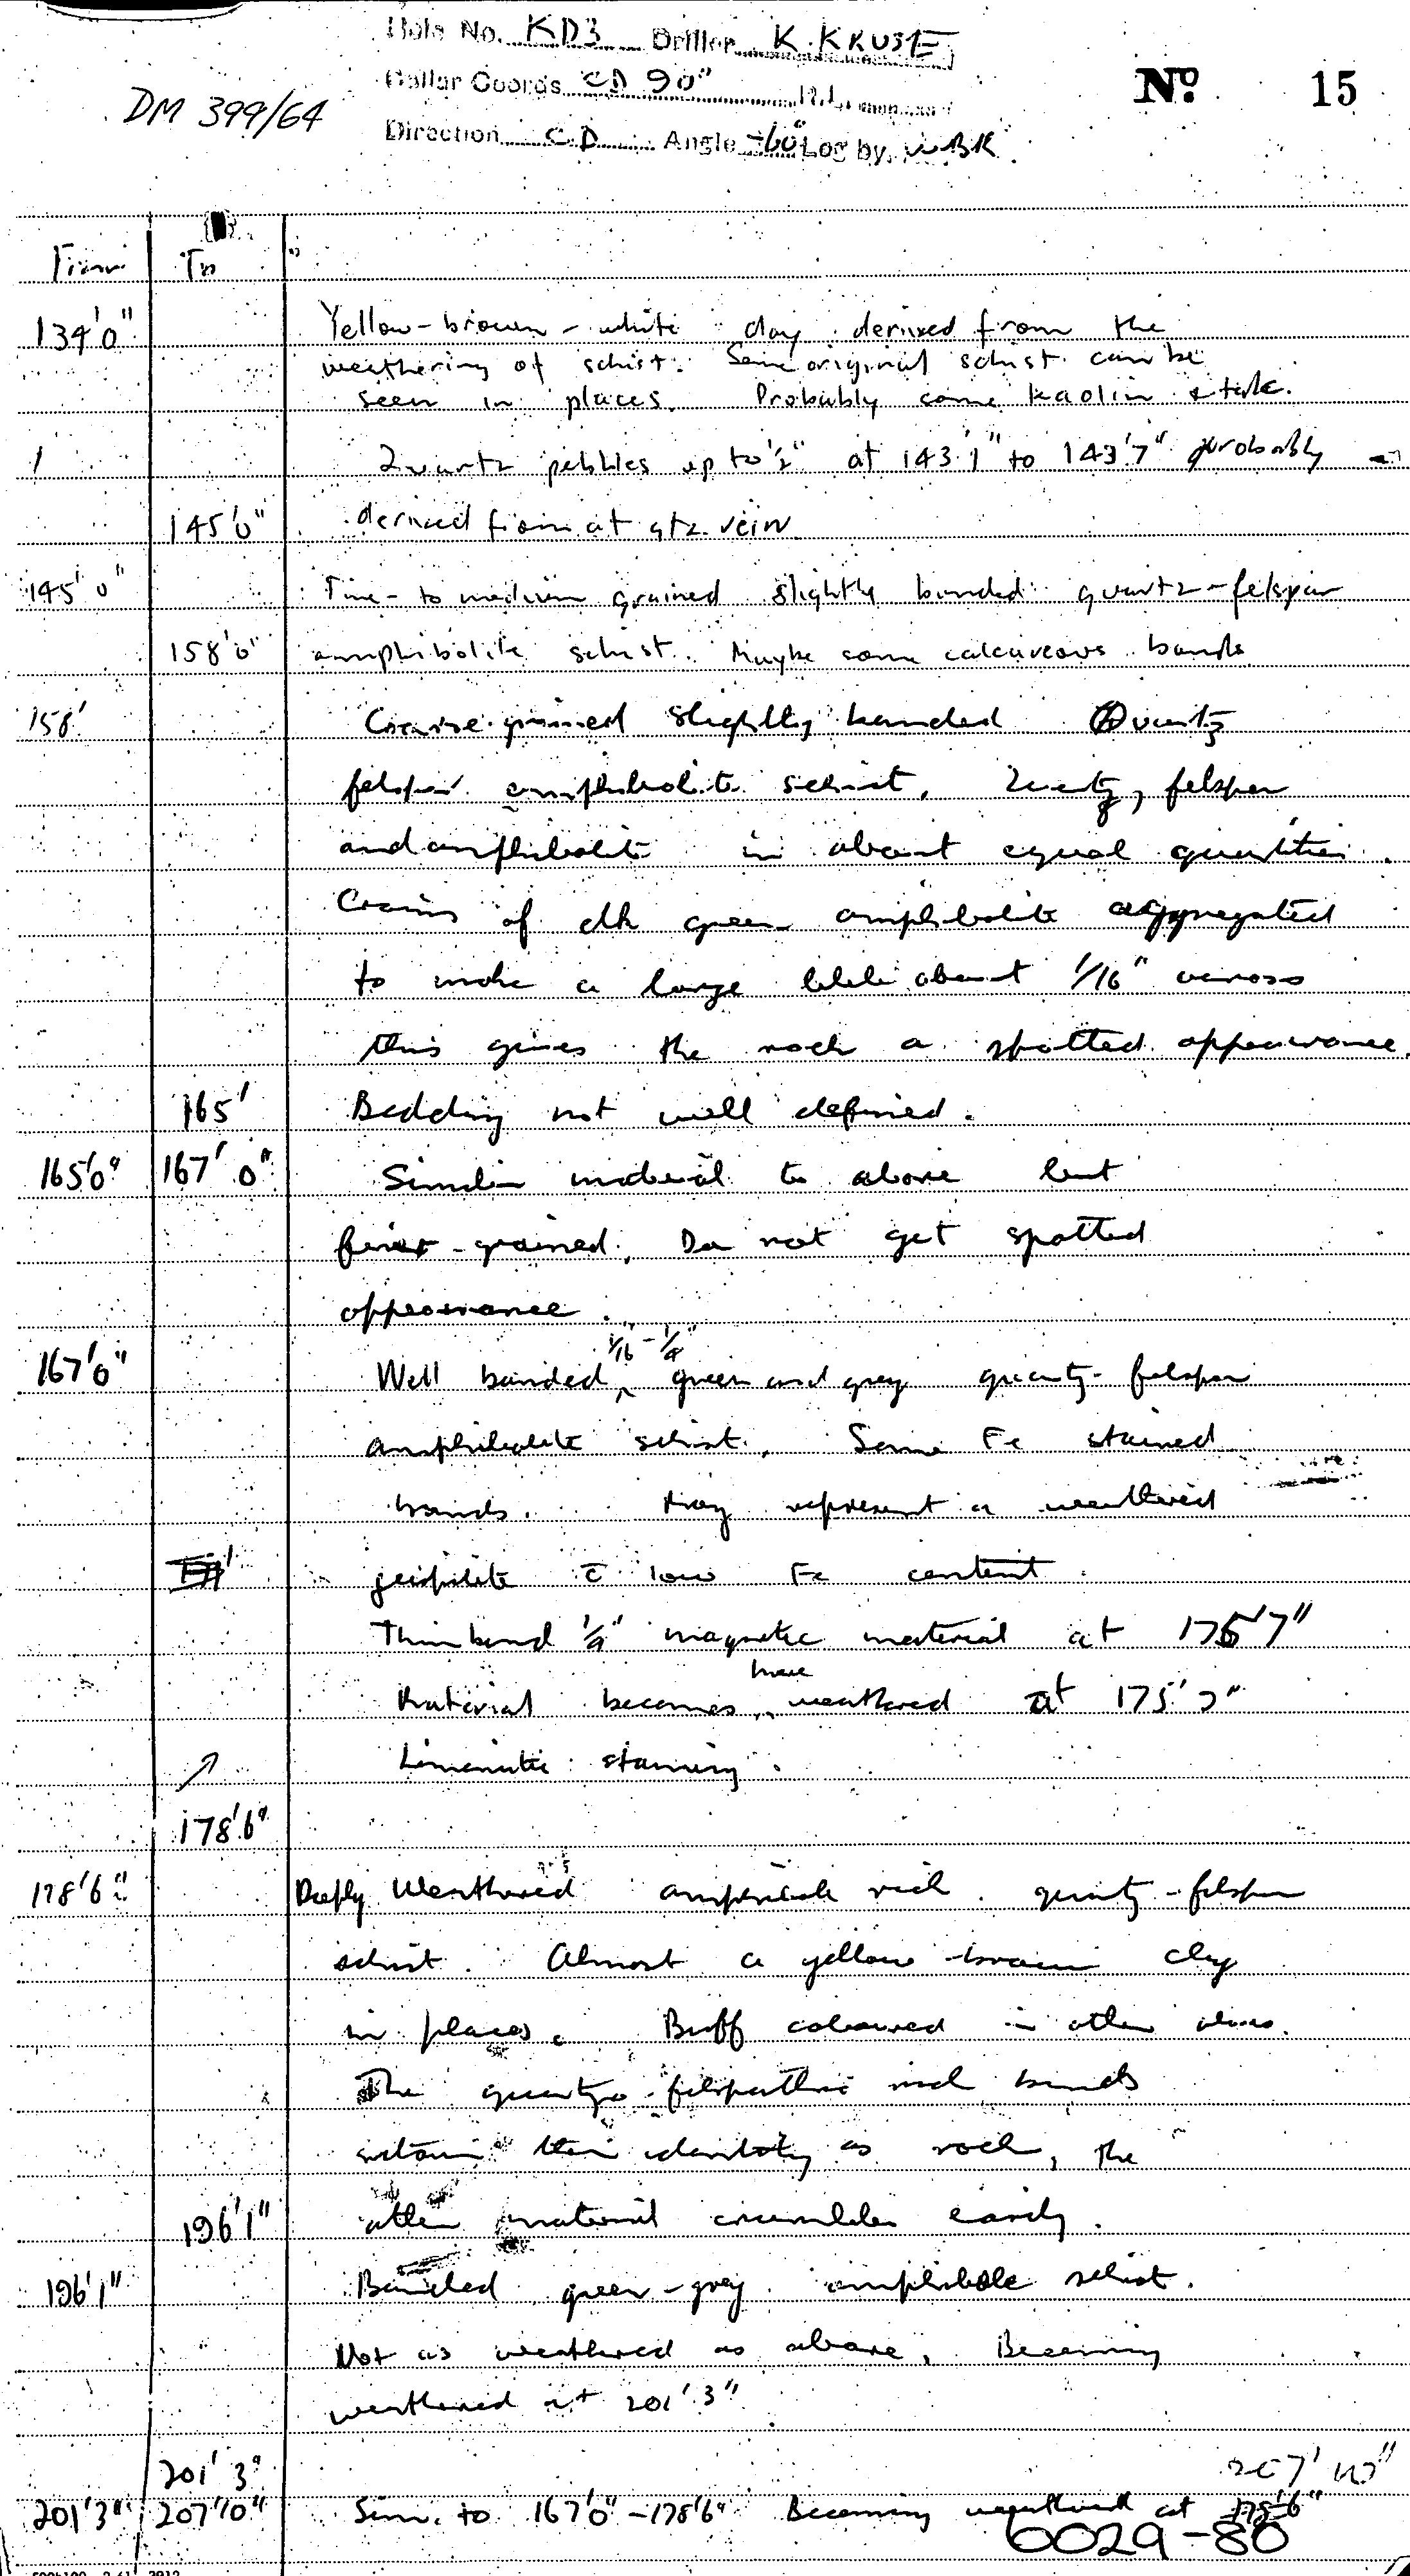 Hole No. KD3 Driller K. KRUSE
Collar Coords CD 90" R.L.
No. 15
DM 399/64
Direction CD Angle -60° Log by WBK
From To
134'0" Yellow-brown-white clay derived from the
weathering of schist. Some original schist can be
seen in places. Probably some kaolin & talc.
Quartz pebbles up to ½" at 143'1" to 143'7" probably
145'0" derived from at qtz vein
145'0" Fine-to medium grained slightly banded quartz-felspar
158'0" amphibolite schist. Maybe some calcareous bands
158' Coarse grained slightly banded Quartz
felspar amphibolite schist. Quartz, felspar
and amphibolite in about equal quantities.
Grains of dk green amphibolite aggregated
to make a large bleb about 1/16" across
this gives the rock a spotted appearance.
165' Bedding not well defined.
165'0" 167'0" Similar material to above but
finer-grained. Do not get spotted
appearance.
1/16 - 1/4"
167'0" Well banded green and grey quartz-felspar
amphibolite schist. Some Fe stained
bands. May represent a weathered
jaspilite c̄ low Fe content.
Thin band 1/4" magnetic material at 175'7"
more
Material becomes weathered at 175'7"
Limonitic staining.
178'6"
178'6" Deeply Weathered amphibole rich quartz-felspar
schist. Almost a yellow-brown clay
in places. Buff coloured in other places.
The quartzo-felspathic rich bands
retain their identity as rock, the
196'1" other material crumbles easily.
196'1" Banded green-grey amphibole schist.
Not as weathered as above. Becoming
weathered at 201'3"
201'3" 207'10"
201'3" 207'10" Sim. to 167'0"-178'6" Becoming weathered at 178'6"
6029-80